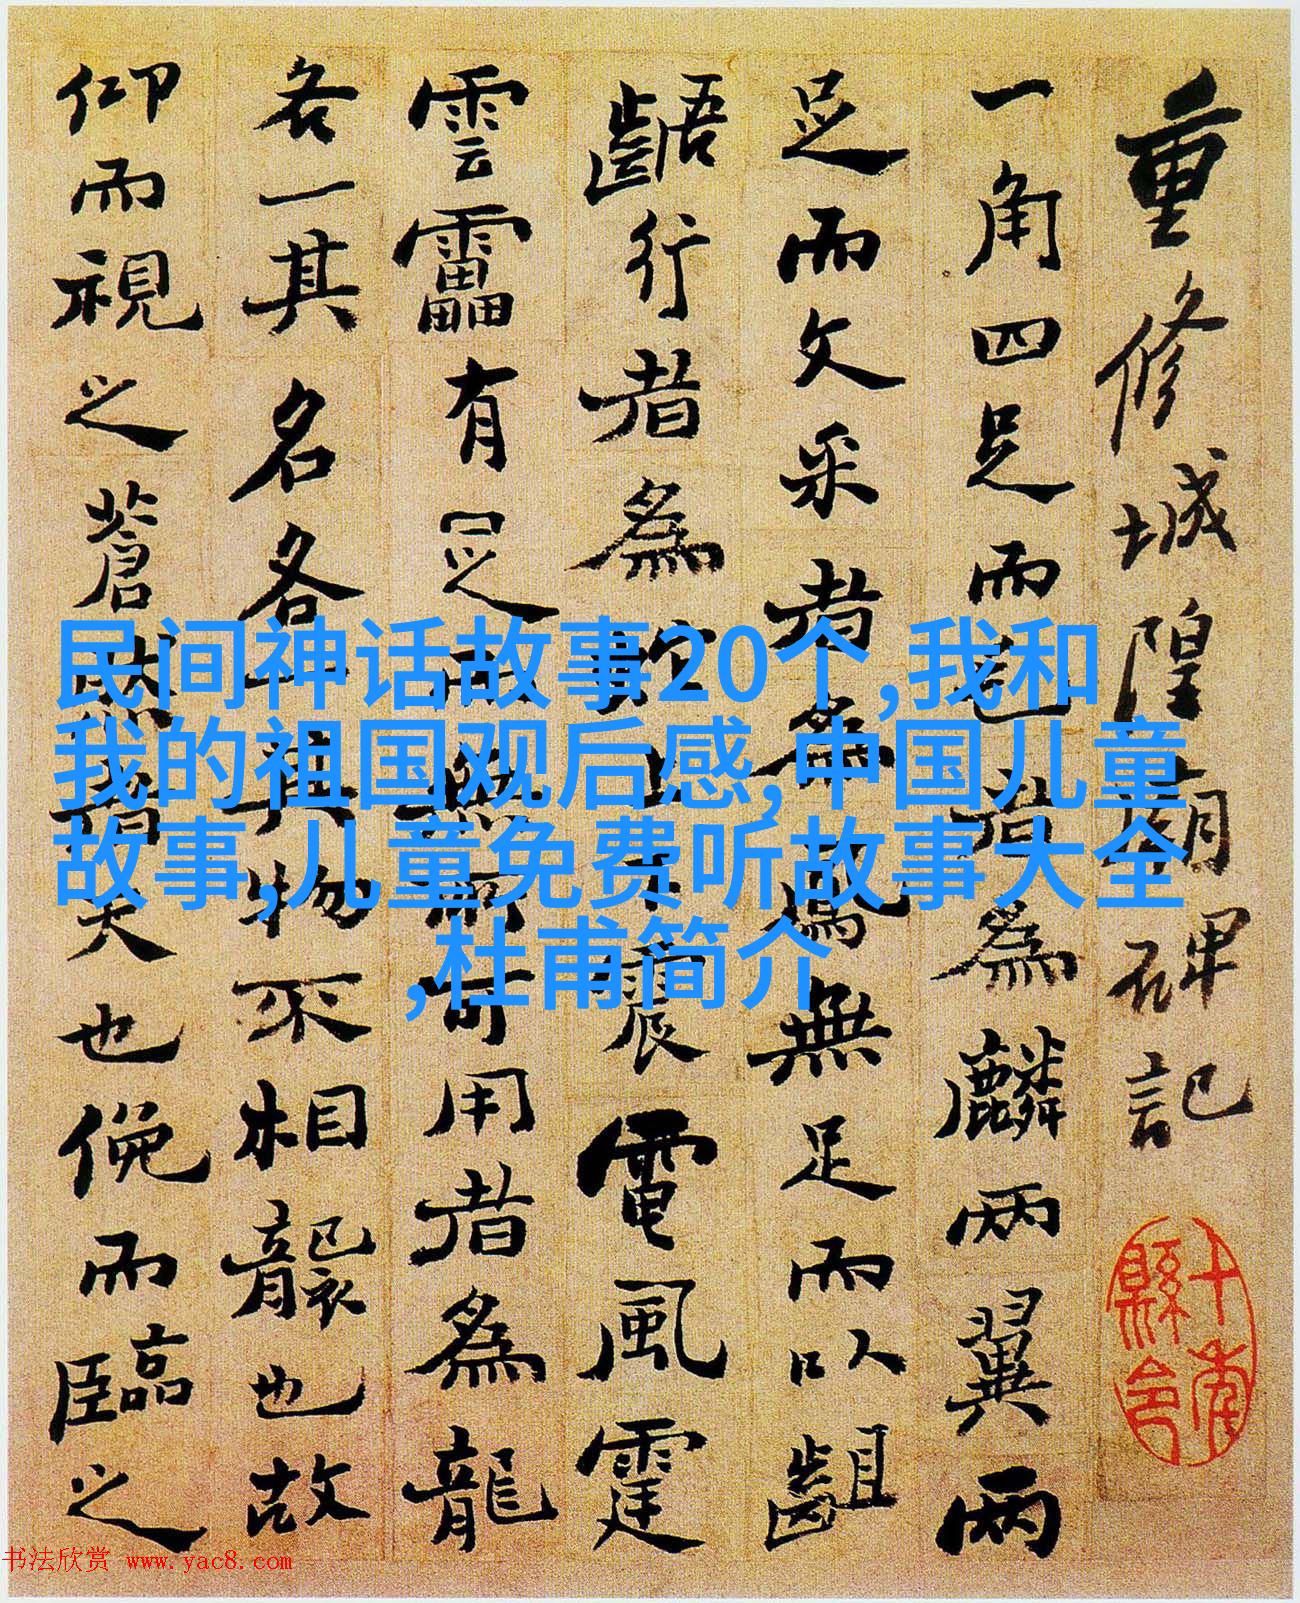 重修城隍廟碑記
一角四足而毛者為麟兩翼兩
足而文采者為鳳無足而以齟
齬行者為蛇上下震電風霆
雲靁有足而無所可用者為龍
各一其名各一其物不相襲也故
仰而視之蒼然者天也俛而臨之
民间神话故事20个,我和
我的祖国观后感,中国儿童
故事,儿童免费听故事大全
,杜甫简介
书法欣赏 www.yac8.com